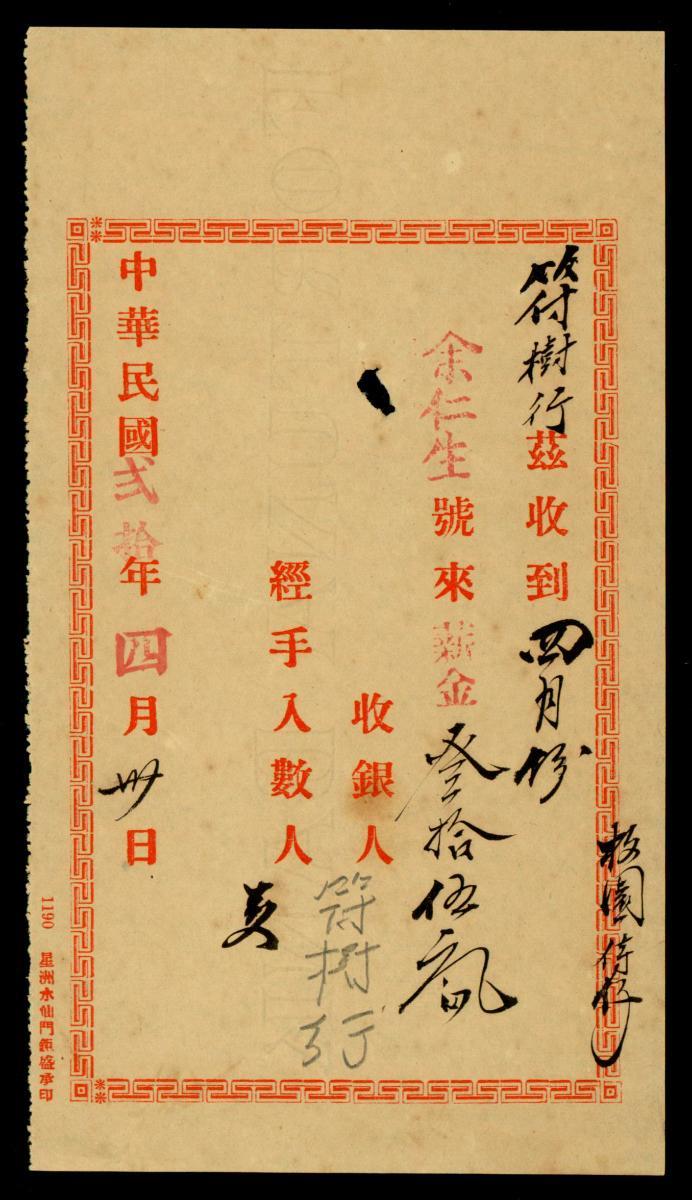 符樹行 茲收到 四月份
余仁生 號來 薪金 叁拾伍元
收銀人 符樹行
經手入數人
中華民國 弍拾 年 四 月 卅 日
1190 星洲水仙門領盛承印